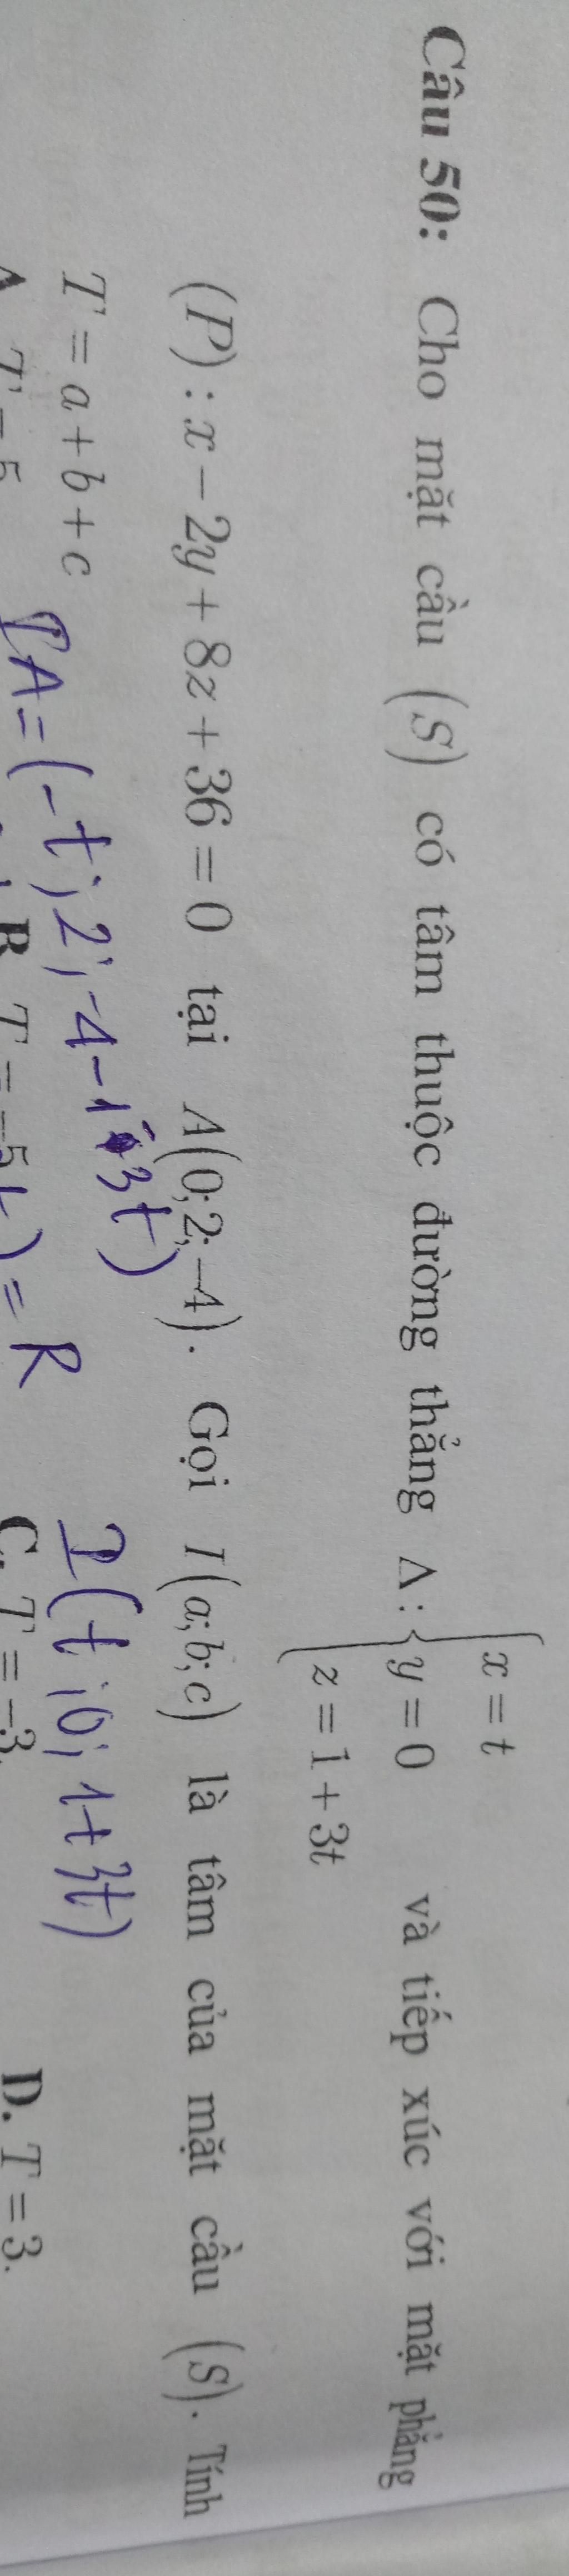 Câu 50: Cho mặt cầu (S) có tâm thuộc đường thẳng Δ: { x = t
y = 0
z = 1 + 3t và tiếp xúc với mặt phẳng
(P): x − 2y + 8z + 36 = 0 tại A(0;2;−4). Gọi I(a;b;c) là tâm của mặt cầu (S). Tính
T = a + b + c
I(t; 0; 1+3t)
IA = (-t; 2; -4-1-3t) = R
A. T = 5 B. T = −5 C. T = −3. D. T = 3.